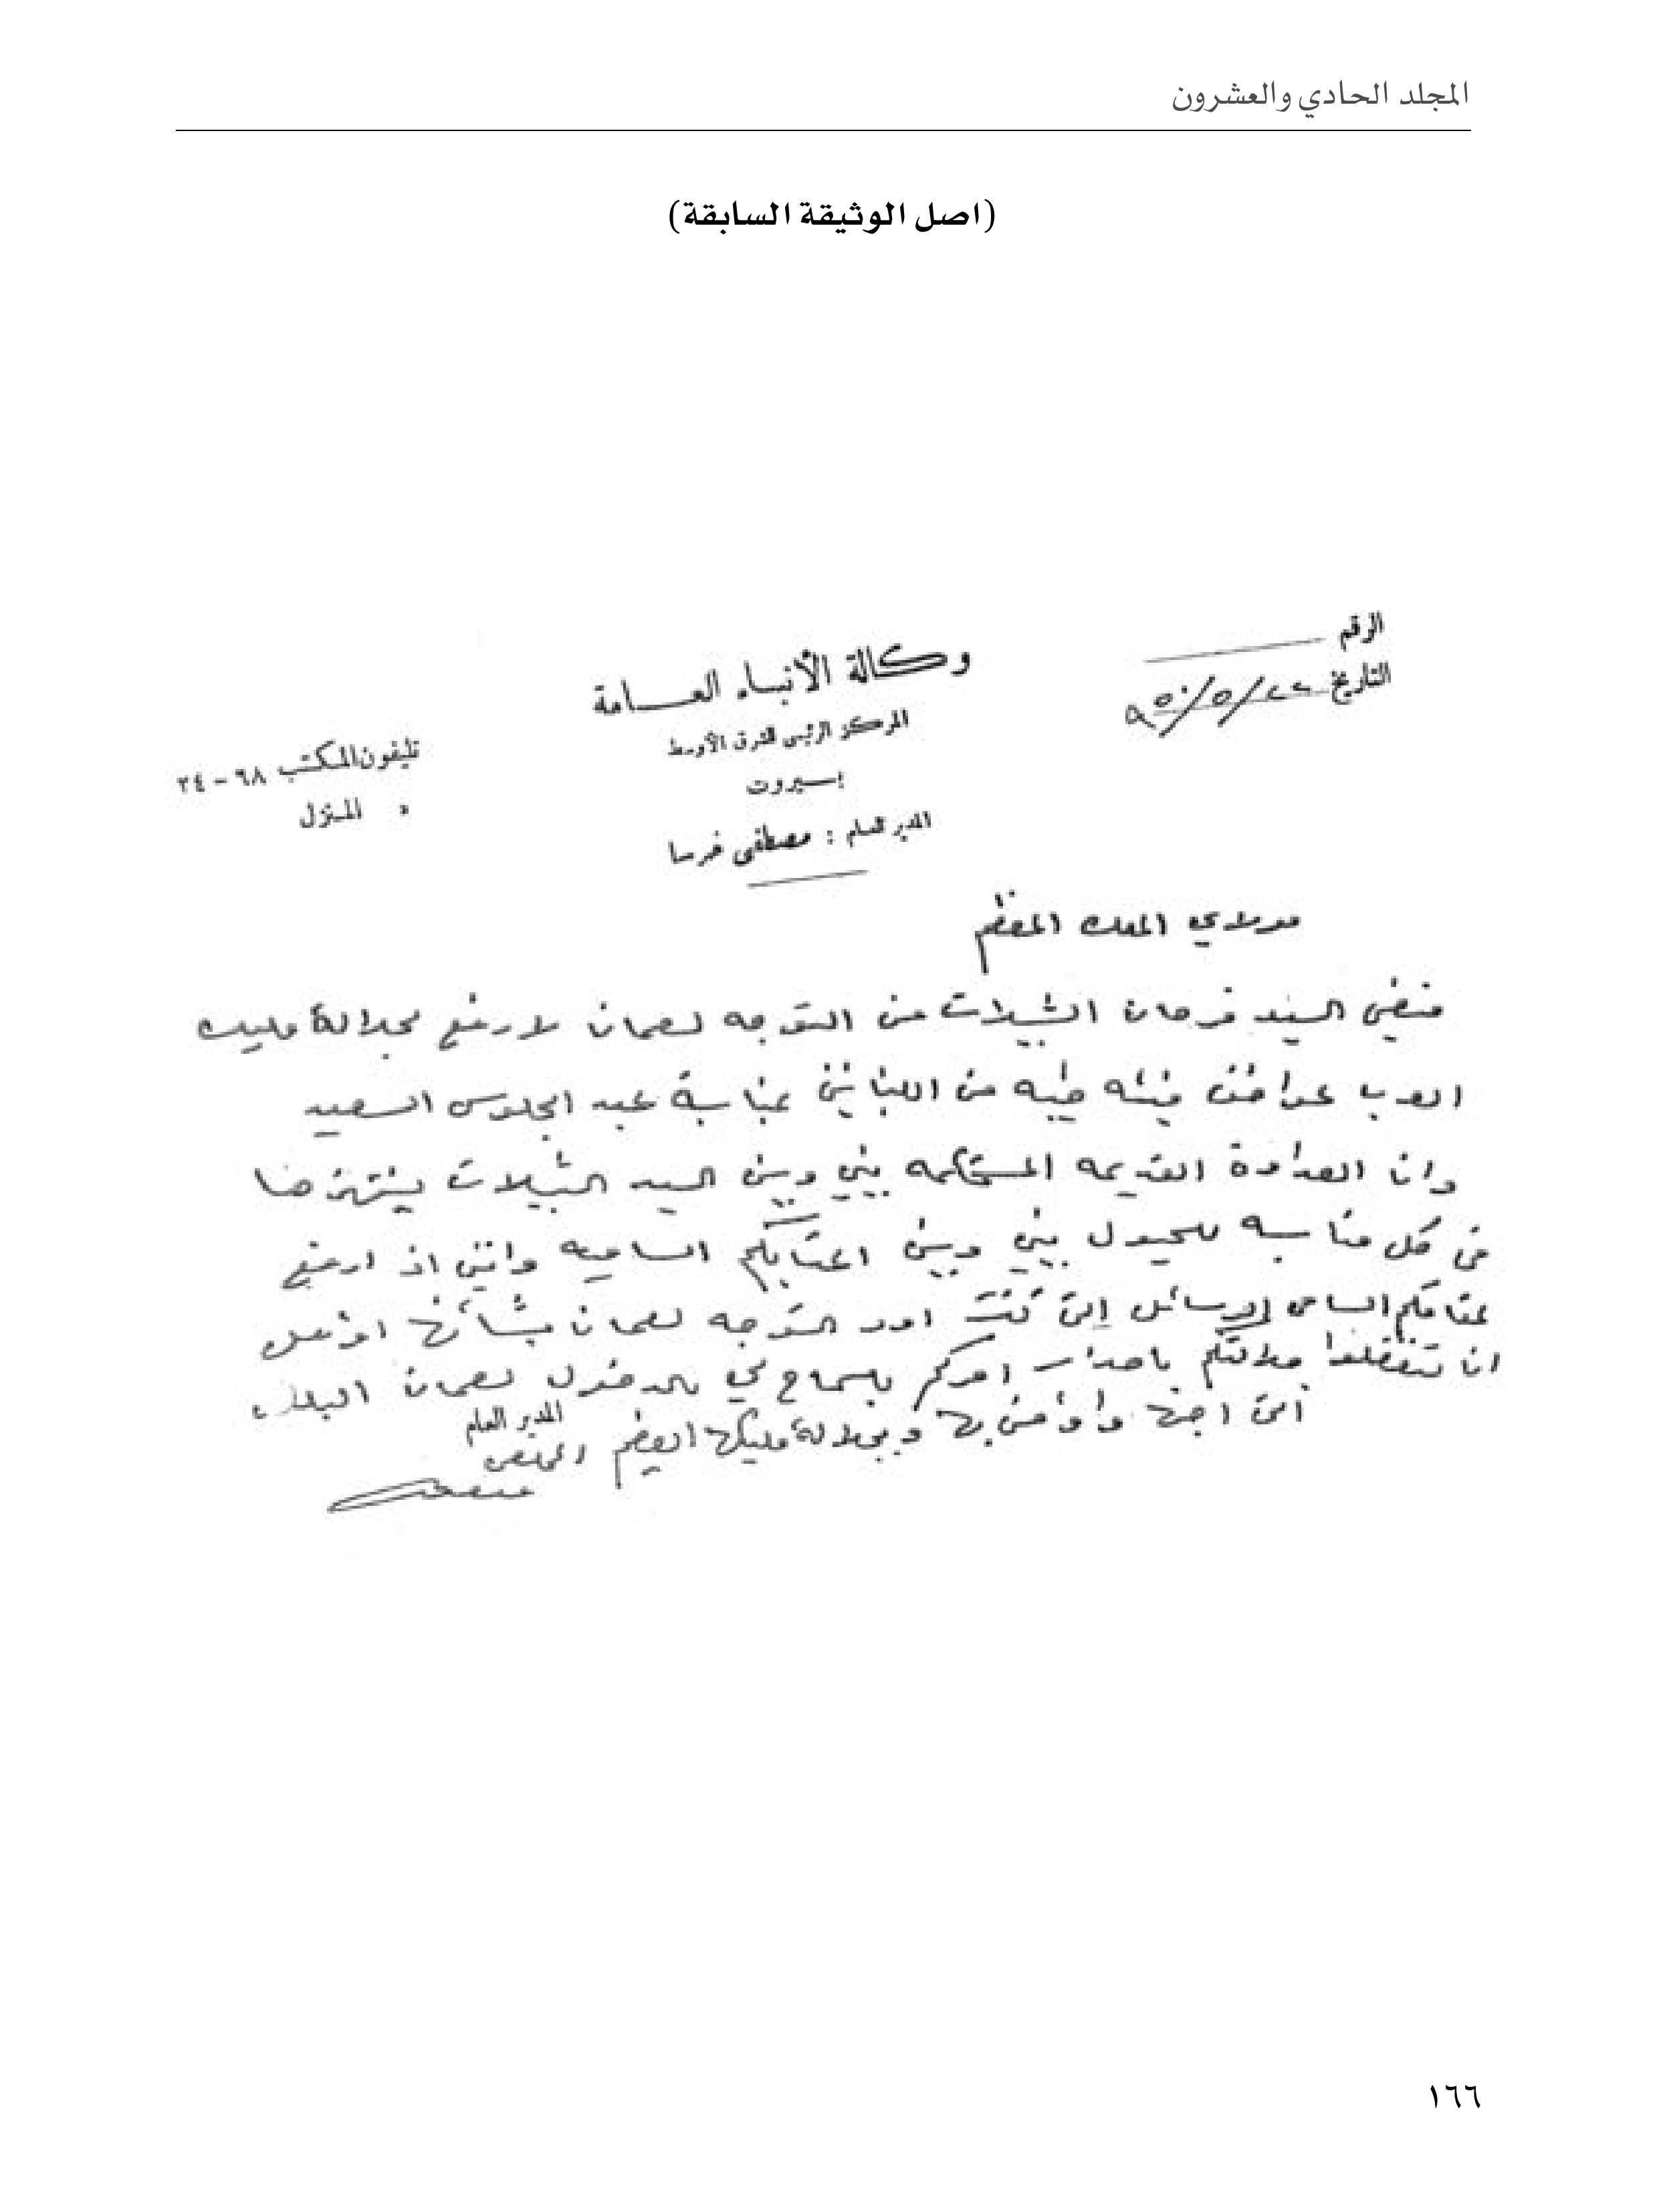 المجلد الحادي والعشرون
(اصل الوثيقة السابقة)
الرقم
التاريخ ٢٢/٥/٩٥٠
وكالة الأنباء العامة
المركز الرئيسي للشرق الأوسط
بيروت
المدير العام : مصطفى خرسا
تليفون المكتب ٦٨ - ٣٤
« المنزل
مولاي الملك المعظم
منعني السيد فرحان الشبيلات من التوجه لعمان لارفع لجلالة مليك
العرب عواطف فئه طيبه من اللبنانيين بمناسبة عيد الجلوس السعيد
وان العداوة القديمه المستحكمه بيني وبين السيد الشبيلات ينتهزها
في كل مناسبه للحيول بيني وبين اعتابكم الساميه وانني اذ ارفع
لمقامكم السامي الرسائل التي كنت اود التوجه لعمان بشأنها اؤمل
ان تتفضلوا جلالتكم باصدار امركم بالسماح لي بالدخول لعمان البلد
التي احبها واؤمن بها وبجلالة مليكها المعظم
المخلص
المدير العام
١٦٦